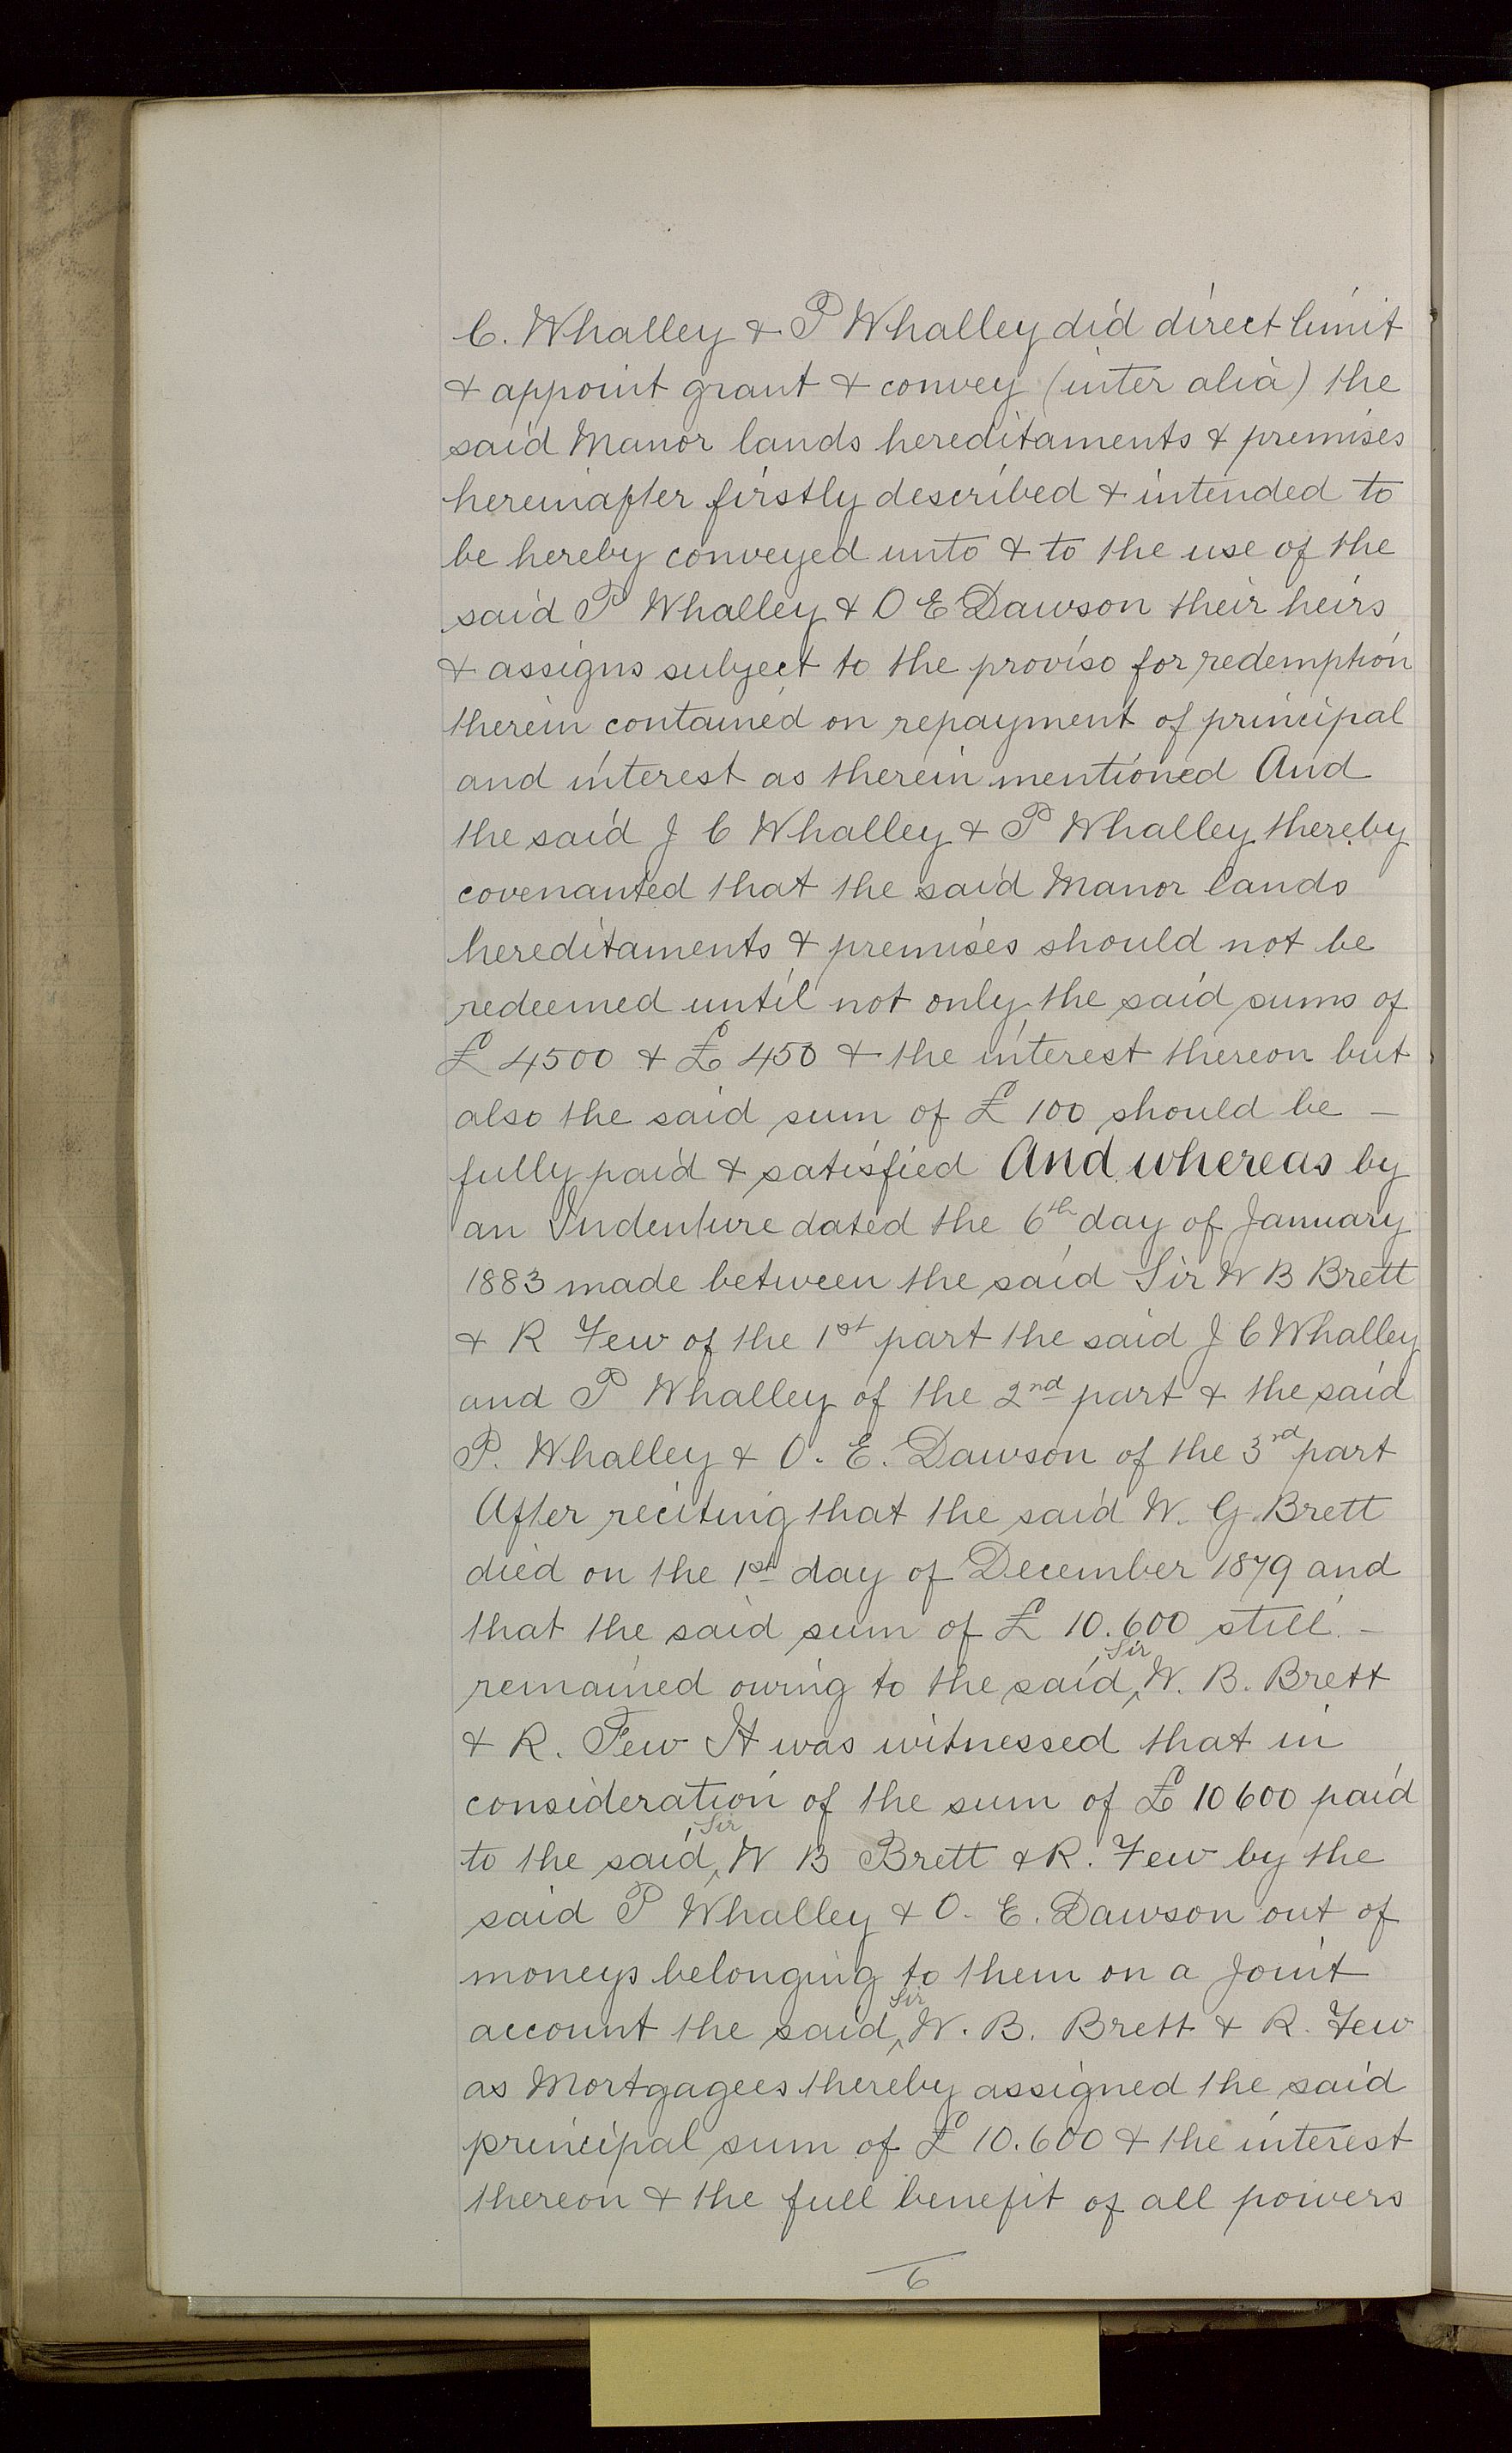 C. Whalley & P Whalley did direct limit
& appoint grant & convey (inter alia) the
said Manor lands hereditaments & premises
hereinafter firstly described & intended to
be hereby conveyed unto & to the use of the
said P Whalley & O E Dawson their heirs
& assigns subject to the proviso for redemption
therein contained on repayment of principal
and interest as therein mentioned And
the said J C Whalley & P Whalley thereby
covenanted that the said Manor lands
hereditaments & premises should not be
redeemed until not only the said sums of
£ 4500 & £ 450 & the interest thereon but
also the said sum of £ 100 should be –
fully paid & satisfied And whereas by
an Indenture dated the 6th day of January
1883 made between the said Sir W B Brett
& R Few of the 1st part the said J C Whalley
and P Whalley of the 2nd part & the said
P. Whalley & O. E. Dawson of the 3rd part
After reciting that the said W. G. Brett
died on the 1st day of December 1879 and
that the said sum of £ 10.600 still –
remained owing to the said Sir W. B. Brett
& R. Few It was witnessed that in
consideration of the sum of £ 10600 paid
to the said Sir W B Brett & R. Few by the
said P Whalley & O. E. Dawson out of
moneys belonging to them on a joint
account the said Sir W. B. Brett & R. Few
as Mortgagees thereby assigned the said
principal sum of £ 10.600 & the interest
thereon & the full benefit of all powers
6